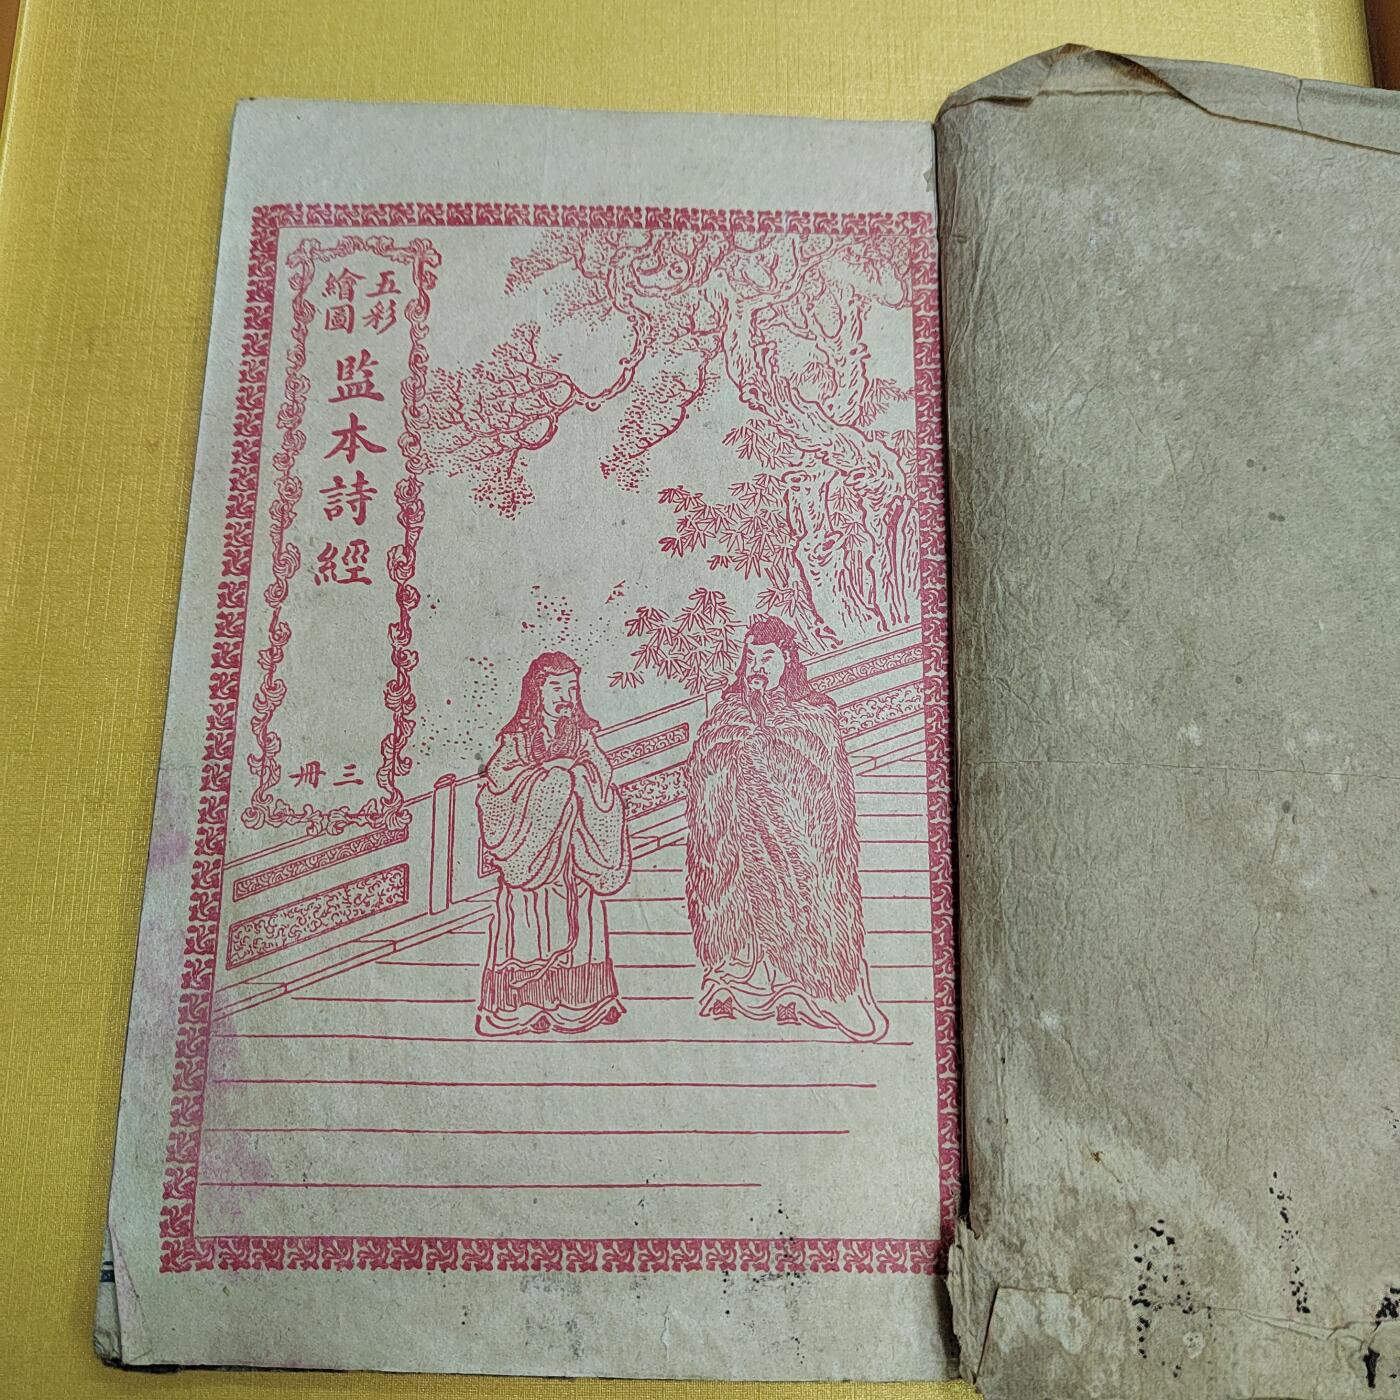 五彩
繪圖
監本詩經
三冊